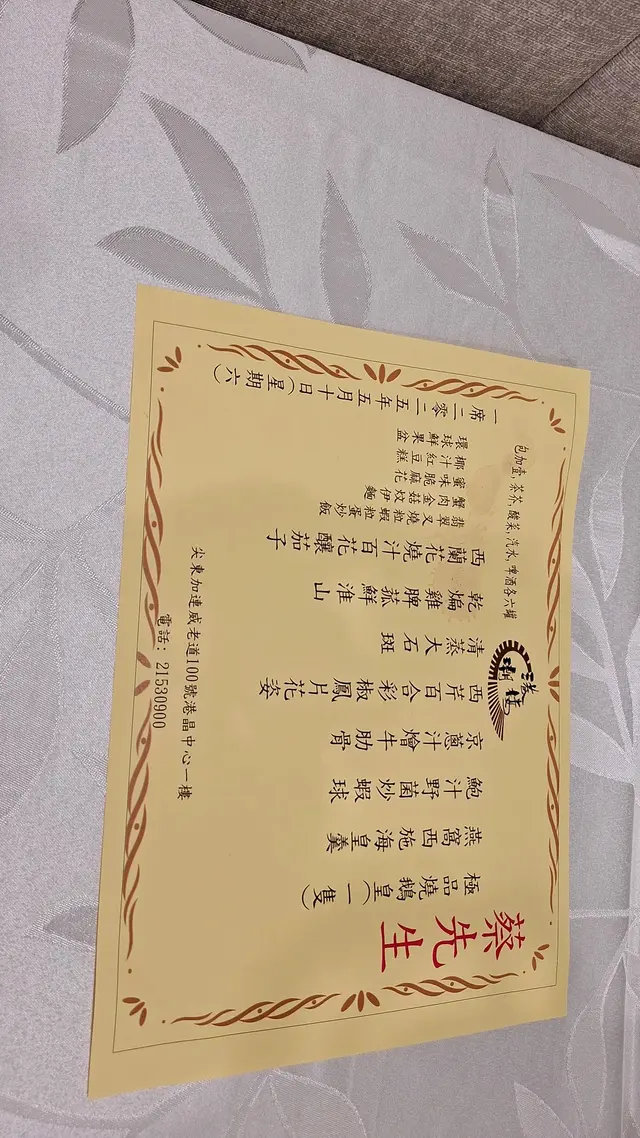 包加壹,茶芥,酸菜,汽水,啤酒各六罐
蔡先生
極品燒鵝皇(一隻)
燕窩西施海皇羹
鮑汁野菌炒蝦球
京蔥汁燴牛肋骨
西芹百合彩椒鳳片花姿
清蒸大石斑
乾煸雞脾菰鮮淮山
西蘭花燒汁百花釀茄子
翡翠叉燒粒蝦粒蛋炒飯
蟹肉金菇炆伊麵
蜜味脆麻花
椰汁紅豆糕
環球鮮果盆
一席二零二五年五月十日(星期六)
尖東加連威老道100號港晶中心一樓
電話: 21530900